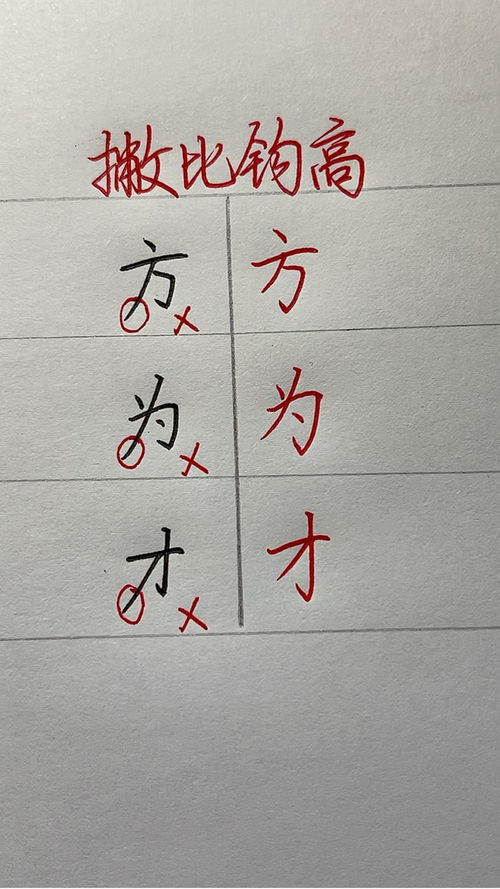 撇比钩高
方 方
为 为
才 才